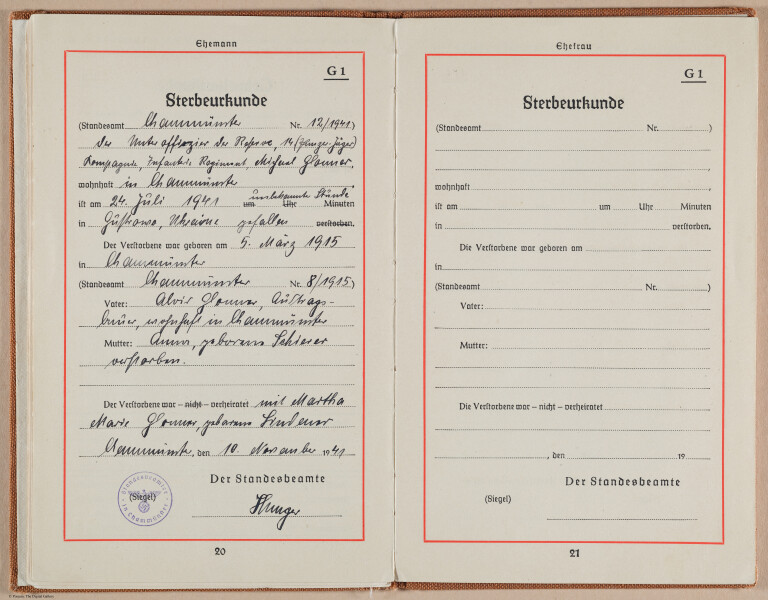 Ehemann
G 1
Sterbeurkunde
(Standesamt Chammünster Nr. 12/1941)
Der Unteroffizier der Reserve, 14 (Panzer-Jäger)
Kompagnie, Infanterie Regiment, Michael
wohnhaft in Chammünster
ist am 24. Juli 1941 um Uhr unbekannte Stunde Minuten
in Ukraine gefallen verstorben.
Der Verstorbene war geboren am 5. März 1915
in Chammünster
(Standesamt Chammünster Nr. 8/1915)
Vater: Alois Austrags-
bauer, wohnhaft in Chammünster
Mutter: Anna, geborene Schierer
verstorben.
Der Verstorbene war – nicht – verheiratet mit Martha
Marie geborene Lindner
Chammünster, den 10. November 1941
Der Standesbeamte
(Siegel)
20
Ehefrau
G 1
Sterbeurkunde
(Standesamt Nr. )
wohnhaft
ist am um Uhr Minuten
in verstorben.
Die Verstorbene war geboren am
in
(Standesamt Nr. )
Vater:
Mutter:
Die Verstorbene war – nicht – verheiratet
, den 19
Der Standesbeamte
(Siegel)
21